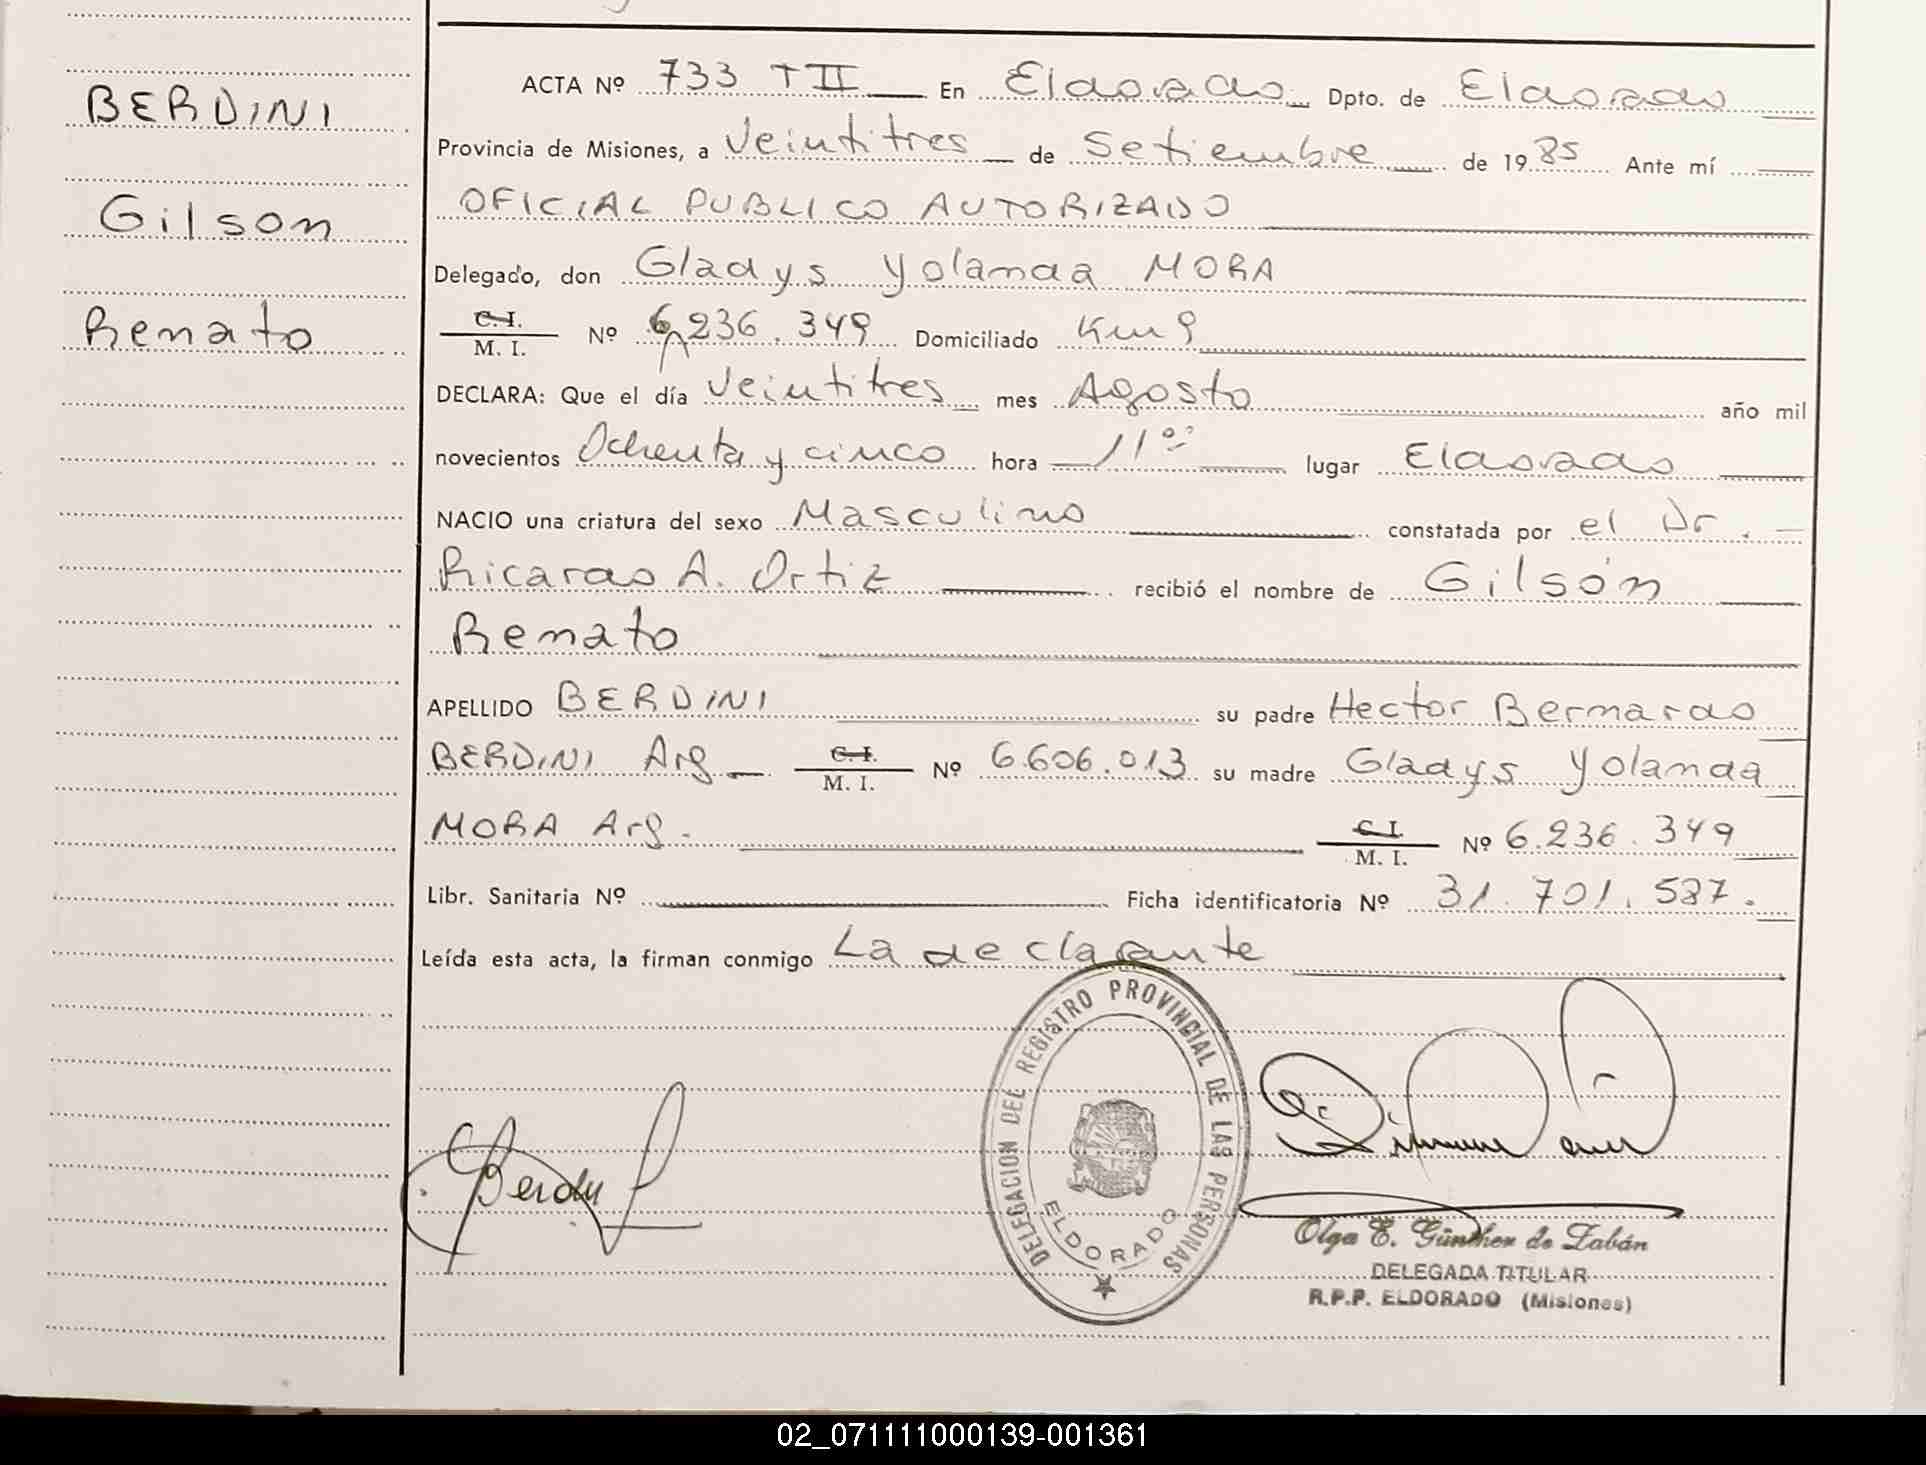 BERDINI
Gilson
Renato
ACTA Nº 733 T II En Eldorado Dpto. de Eldorado
Provincia de Misiones, a Veintitres de Setiembre de 1985 Ante mí
OFICIAL PUBLICO AUTORIZADO
Delegado, don Gladys Yolanda MORA
C. I.
M. I. Nº 6.236.349 Domiciliado Km 9
DECLARA: Que el día Veintitres mes Agosto año mil
novecientos Ochenta y cinco hora 11ºº lugar Eldorado
NACIO una criatura del sexo Masculino constatada por el Dr.
Ricardo A. Ortiz recibió el nombre de Gilsón
Renato
APELLIDO BERDINI su padre Hector Bernardo
BERDINI Arg C. I. M. I. Nº 6.606.013 su madre Gladys Yolanda
MORA Arg. C. I. M. I. Nº 6.236.349
Libr. Sanitaria Nº Ficha identificatoria Nº 31.701.587.
Leída esta acta, la firman conmigo La declarante
DELEGACION DEL REGISTRO PROVINCIAL DE LAS PERSONAS
ELDORADO
Olga E. Günther de Zabán
DELEGADA TITULAR
R.P.P. ELDORADO (Misiones)
02_071111000139-001361